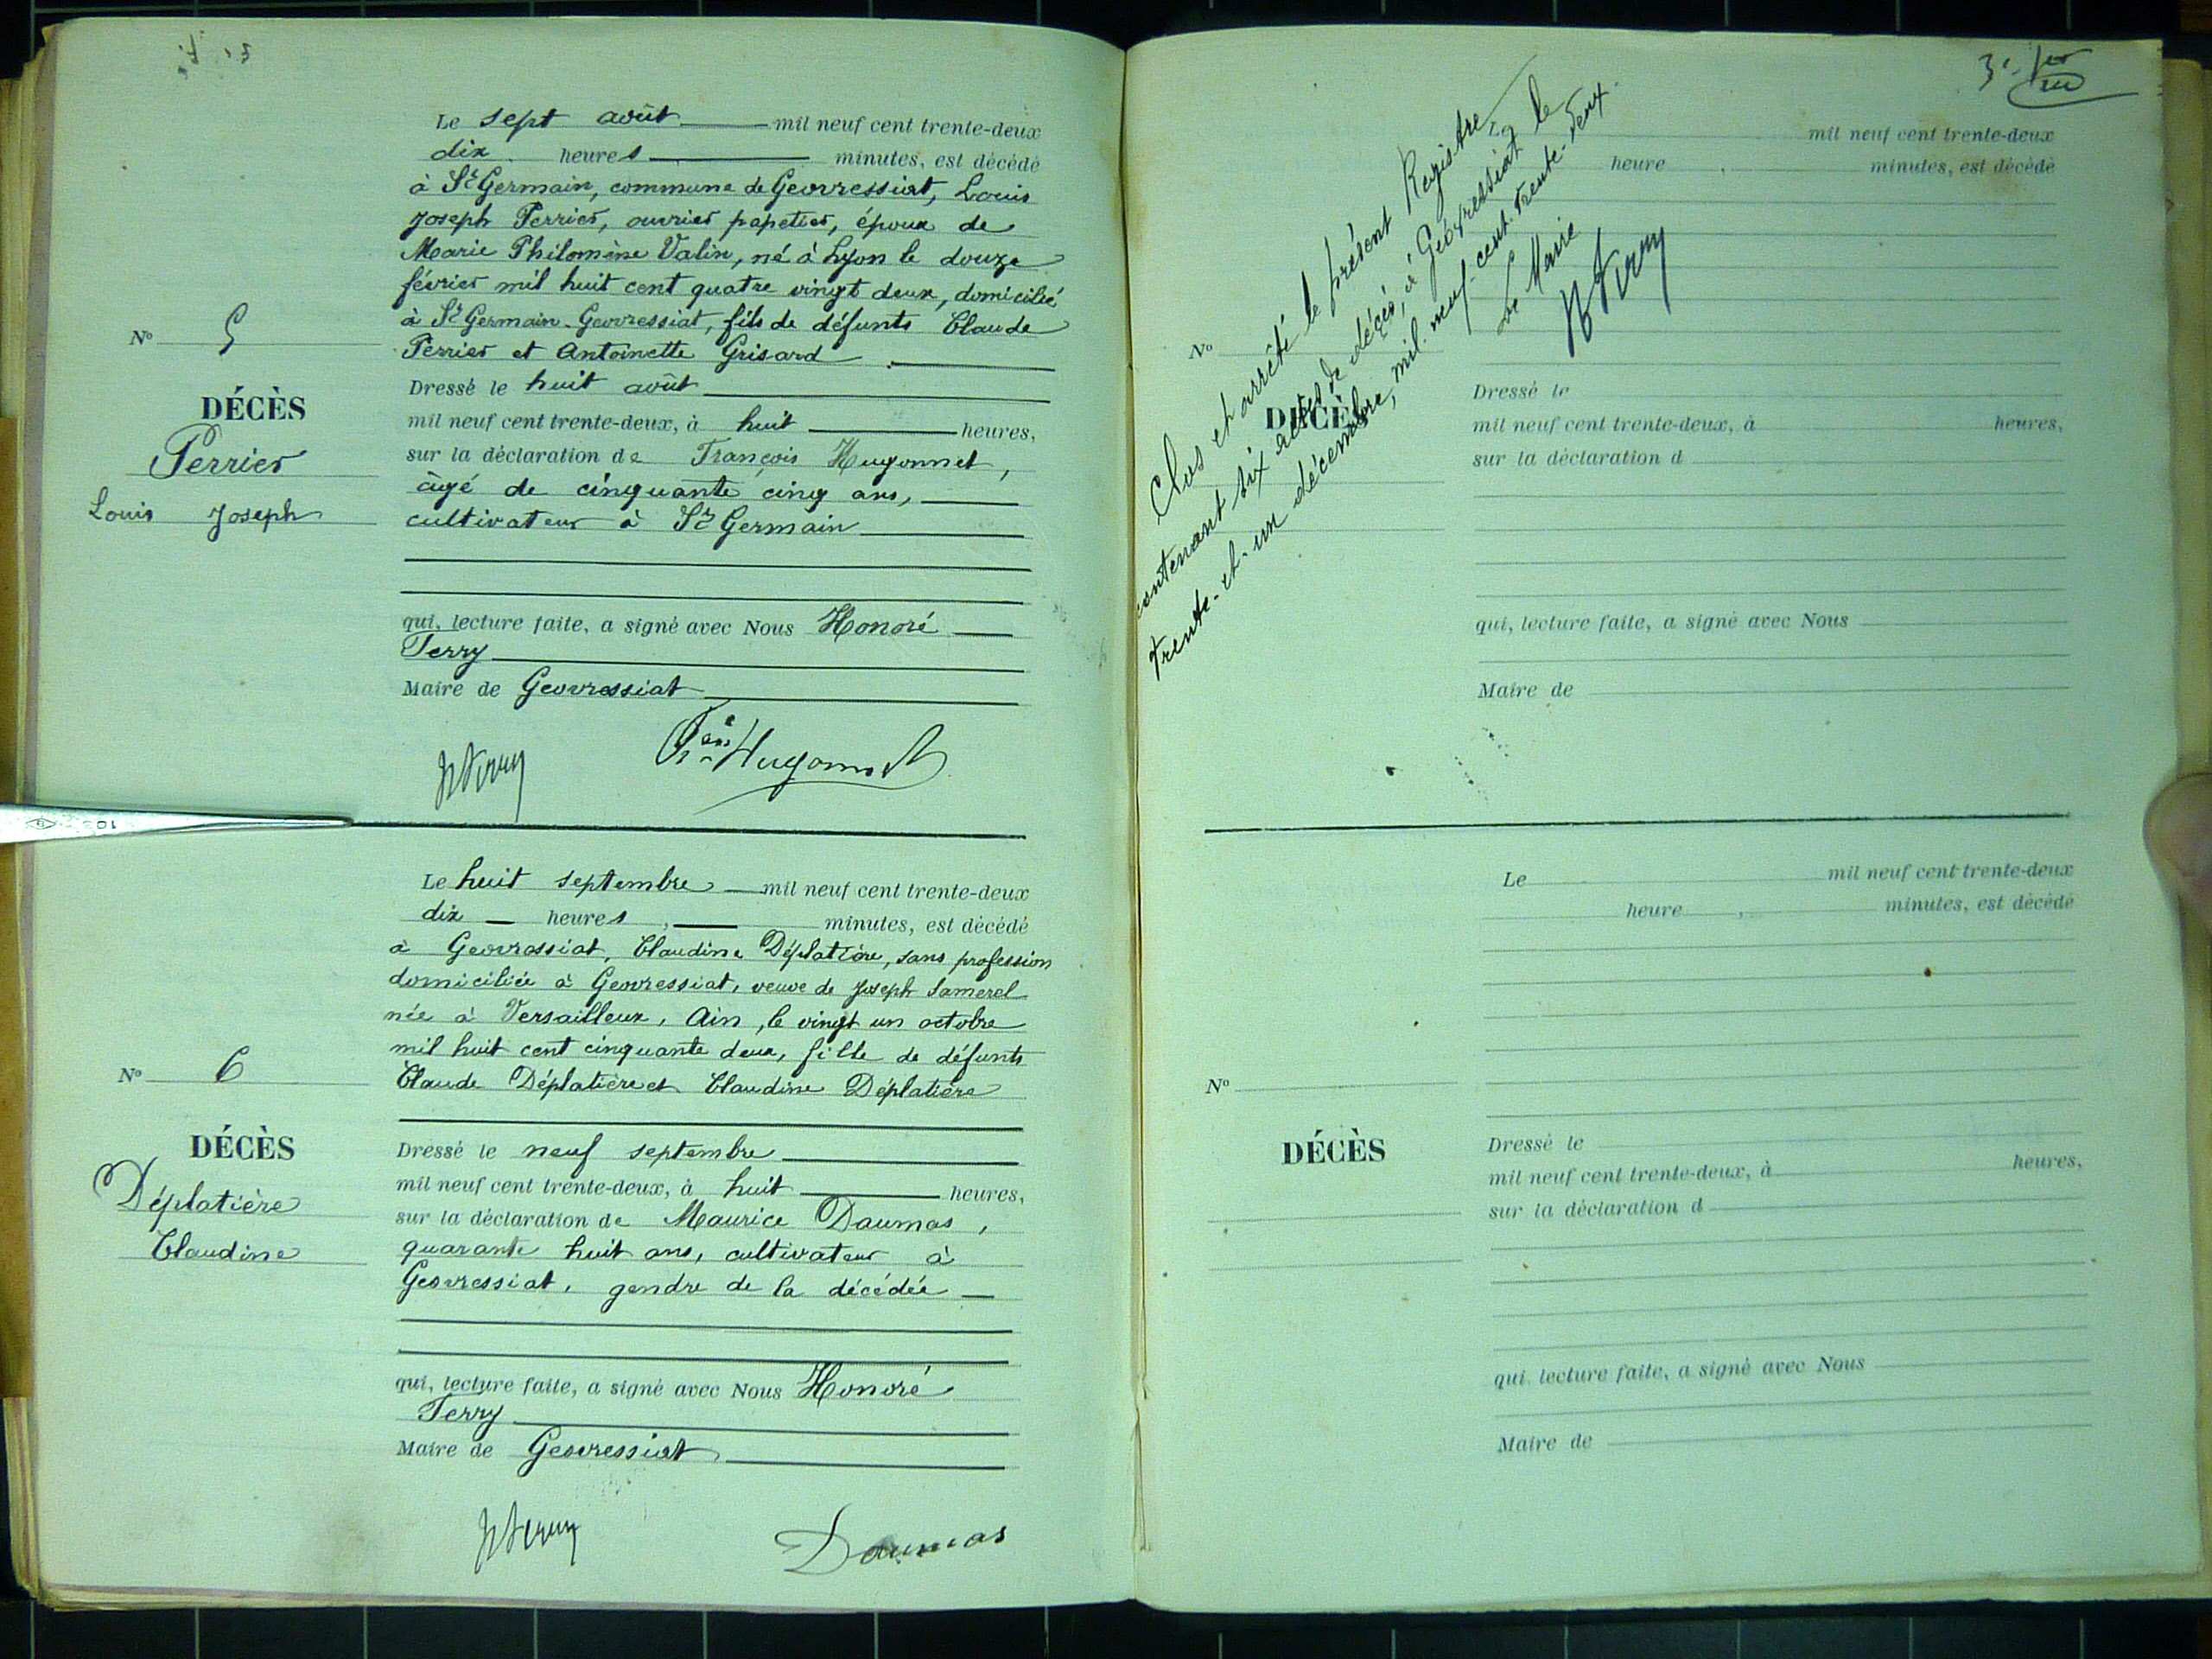 Le sept août mil neuf cent trente-deux
dix heures minutes, est décédé
à St Germain, commune de Geovressiat, Louis
Joseph Perrier, ouvrier papetier, époux de
Marie Philomène Valin, né à Lyon le douze
février mil huit cent quatre vingt deux, domicilié
à St Germain-Geovressiat, fils de défunts Claude
Perrier et Antoinette Grisard
No 5
DÉCÈS
Perrier
Louis Joseph
Dressé le huit août
mil neuf cent trente-deux, à huit heures,
sur la déclaration de François Hugonnet,
âgé de cinquante cinq ans,
cultivateur à St Germain
qui, lecture faite, a signé avec Nous Honoré
Ferry
Maire de Geovressiat
HFerry
Hugonnet
Le huit septembre mil neuf cent trente-deux
dix heures, minutes, est décédé
à Geovressiat, Claudine Déplatière, sans profession
domiciliée à Geovressiat, veuve de Joseph Samerel
née à Versailleux, Ain, le vingt un octobre
mil huit cent cinquante deux, fille de défunts
Claude Déplatière et Claudine Déplatière
No 6
DÉCÈS
Déplatière
Claudine
Dressé le neuf septembre
mil neuf cent trente-deux, à huit heures,
sur la déclaration de Maurice Daumas,
quarante huit ans, cultivateur à
Geovressiat, gendre de la décédée
qui, lecture faite, a signé avec Nous Honoré
Ferry
Maire de Geovressiat
HFerry
Daumas
Clos et arrêté le présent Registre,
contenant six actes de décès, à Géovressiat le
trente-et-un décembre, mil-neuf-cent-trente-deux.
Le Maire
HFerry
mil neuf cent trente-deux
heure, minutes, est décédé
No
DÉCÈS
Dressé le
mil neuf cent trente-deux, à heures,
sur la déclaration d
qui, lecture faite, a signé avec Nous
Maire de
Le mil neuf cent trente-deux
heure, minutes, est décédé
No
DÉCÈS
Dressé le
mil neuf cent trente-deux, à heures,
sur la déclaration d
qui, lecture faite, a signé avec Nous
Maire de